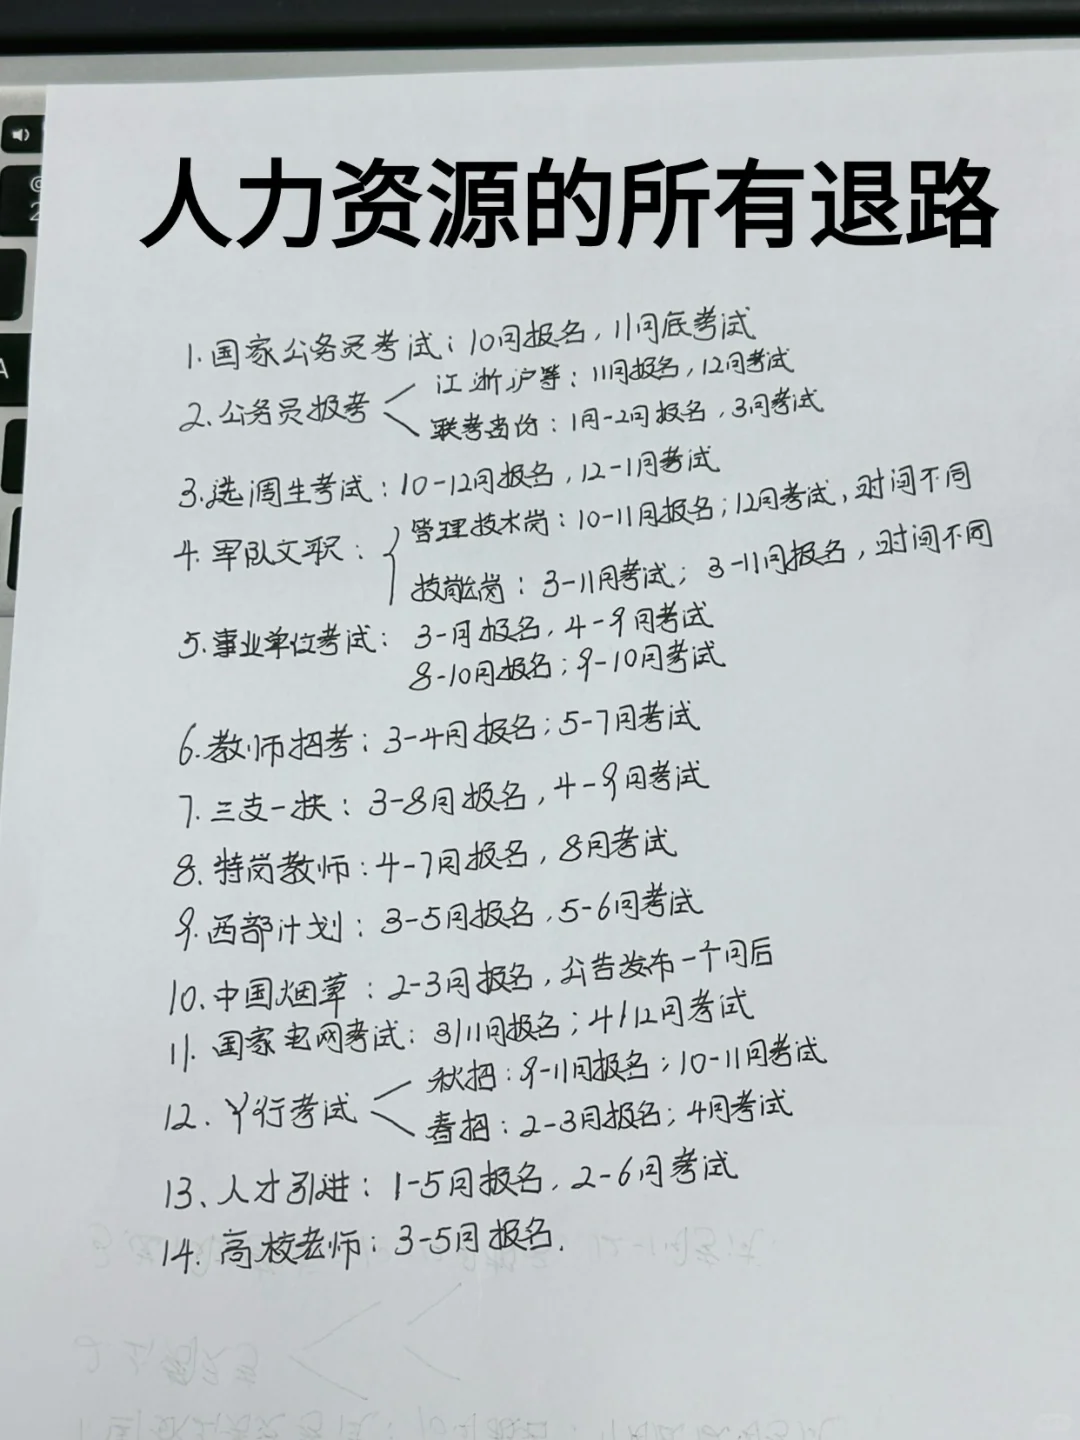 人力资源的所有退路
1.国家公务员考试：10月报名，11月底考试
2.公务员报考
江浙沪等：11月报名，12月考试
联考省份：1月-2月报名，3月考试
3.选调生考试：10-12月报名，12-1月考试
4.军队文职：
管理技术岗：10-11月报名；12月考试，时间不同
技能岗：3-11月考试；3-11月报名，时间不同
5.事业单位考试：3-月报名，4-9月考试
8-10月报名；9-10月考试
6.教师招考：3-4月报名；5-7月考试
7.三支一扶：3-8月报名，4-9月考试
8.特岗教师：4-7月报名，8月考试
9.西部计划：3-5月报名，5-6月考试
10.中国烟草：2-3月报名，公告发布一个月后
11.国家电网考试：3/11月报名；4/12月考试
12.丫行考试
秋招：9-11月报名；10-11月考试
春招：2-3月报名；4月考试
13、人才引进：1-5月报名，2-6月考试
14.高校老师：3-5月报名.